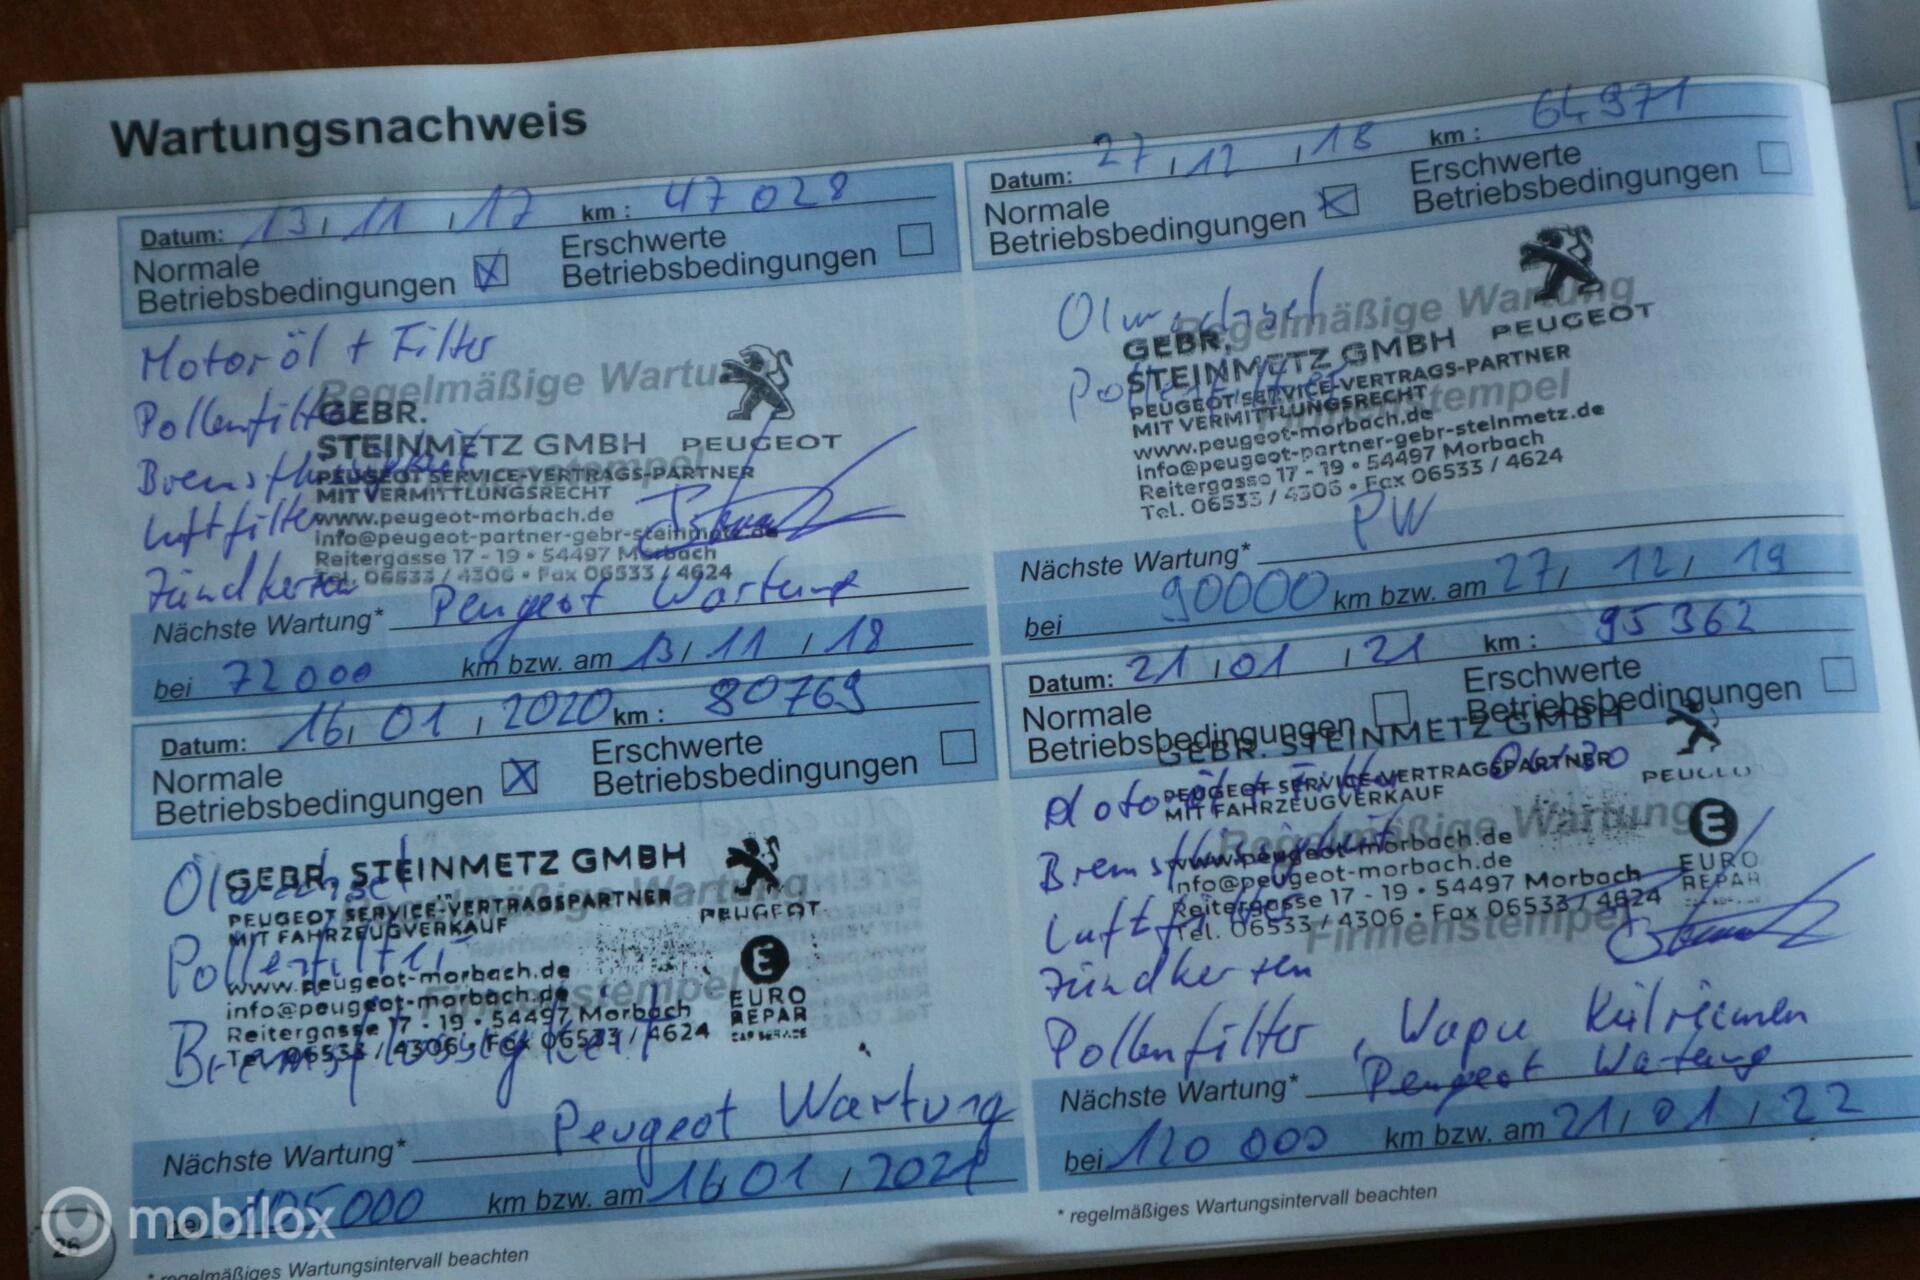 Wartungsnachweis
Datum: 13, 11, 17 km : 47028
Normale Betriebsbedingungen
Erschwerte Betriebsbedingungen
Motoröl + Filter
Pollenfilter
Bremsflüssigkeit
Luftfilter
Zündkerzen
Regelmäßige Wartung
Firmenstempel
GEBR.
STEINMETZ GMBH PEUGEOT
PEUGEOT SERVICE-VERTRAGS-PARTNER
MIT VERMITTLUNGSRECHT
www.peugeot-morbach.de
info@peugeot-partner-gebr-steinmetz.de
Reitergasse 17 - 19 • 54497 Morbach
Tel. 06533 / 4306 • Fax 06533 / 4624
Nächste Wartung* Peugeot Wartung
bei 72000 km bzw. am 13, 11, 18
Datum: 27, 12, 18 km : 64971
Normale Betriebsbedingungen
Erschwerte Betriebsbedingungen
Ölwechsel
Pollenfilter
Regelmäßige Wartung
Firmenstempel
GEBR.
STEINMETZ GMBH PEUGEOT
PEUGEOT SERVICE-VERTRAGS-PARTNER
MIT VERMITTLUNGSRECHT
www.peugeot-morbach.de
info@peugeot-partner-gebr-steinmetz.de
Reitergasse 17 - 19 • 54497 Morbach
Tel. 06533 / 4306 • Fax 06533 / 4624
Nächste Wartung* PW
bei 90000 km bzw. am 27, 12, 19
Datum: 16, 01, 2020 km : 80769
Normale Betriebsbedingungen
Erschwerte Betriebsbedingungen
Ölwechsel
Pollenfilter
Bremsflüssigkeit
Regelmäßige Wartung
Firmenstempel
GEBR. STEINMETZ GMBH
PEUGEOT SERVICE-VERTRAGSPARTNER
MIT FAHRZEUGVERKAUF
PEUGEOT
www.peugeot-morbach.de
info@peugeot-morbach.de
Reitergasse 17 - 19 • 54497 Morbach
Tel. 06533 / 4306 • Fax 06533 / 4624
EURO
REPAR
CAR SERVICE
Nächste Wartung* Peugeot Wartung
bei 105000 km bzw. am 16, 01, 2021
* regelmäßiges Wartungsintervall beachten
Datum: 21, 01, 21 km : 95362
Normale Betriebsbedingungen
Erschwerte Betriebsbedingungen
Motoröl + Filter 0W30
Bremsflüssigkeit
Luftfilter
Zündkerzen
Pollenfilter, Wapu
Regelmäßige Wartung
Firmenstempel
GEBR. STEINMETZ GMBH
PEUGEOT SERVICE-VERTRAGSPARTNER
MIT FAHRZEUGVERKAUF
PEUGEOT
www.peugeot-morbach.de
info@peugeot-morbach.de
Reitergasse 17 - 19 • 54497 Morbach
Tel. 06533 / 4306 • Fax 06533 / 4624
EURO
REPAR
Nächste Wartung* Peugeot Wartung
bei 120 000 km bzw. am 21, 01, 22
* regelmäßiges Wartungsintervall beachten
26
mobilox